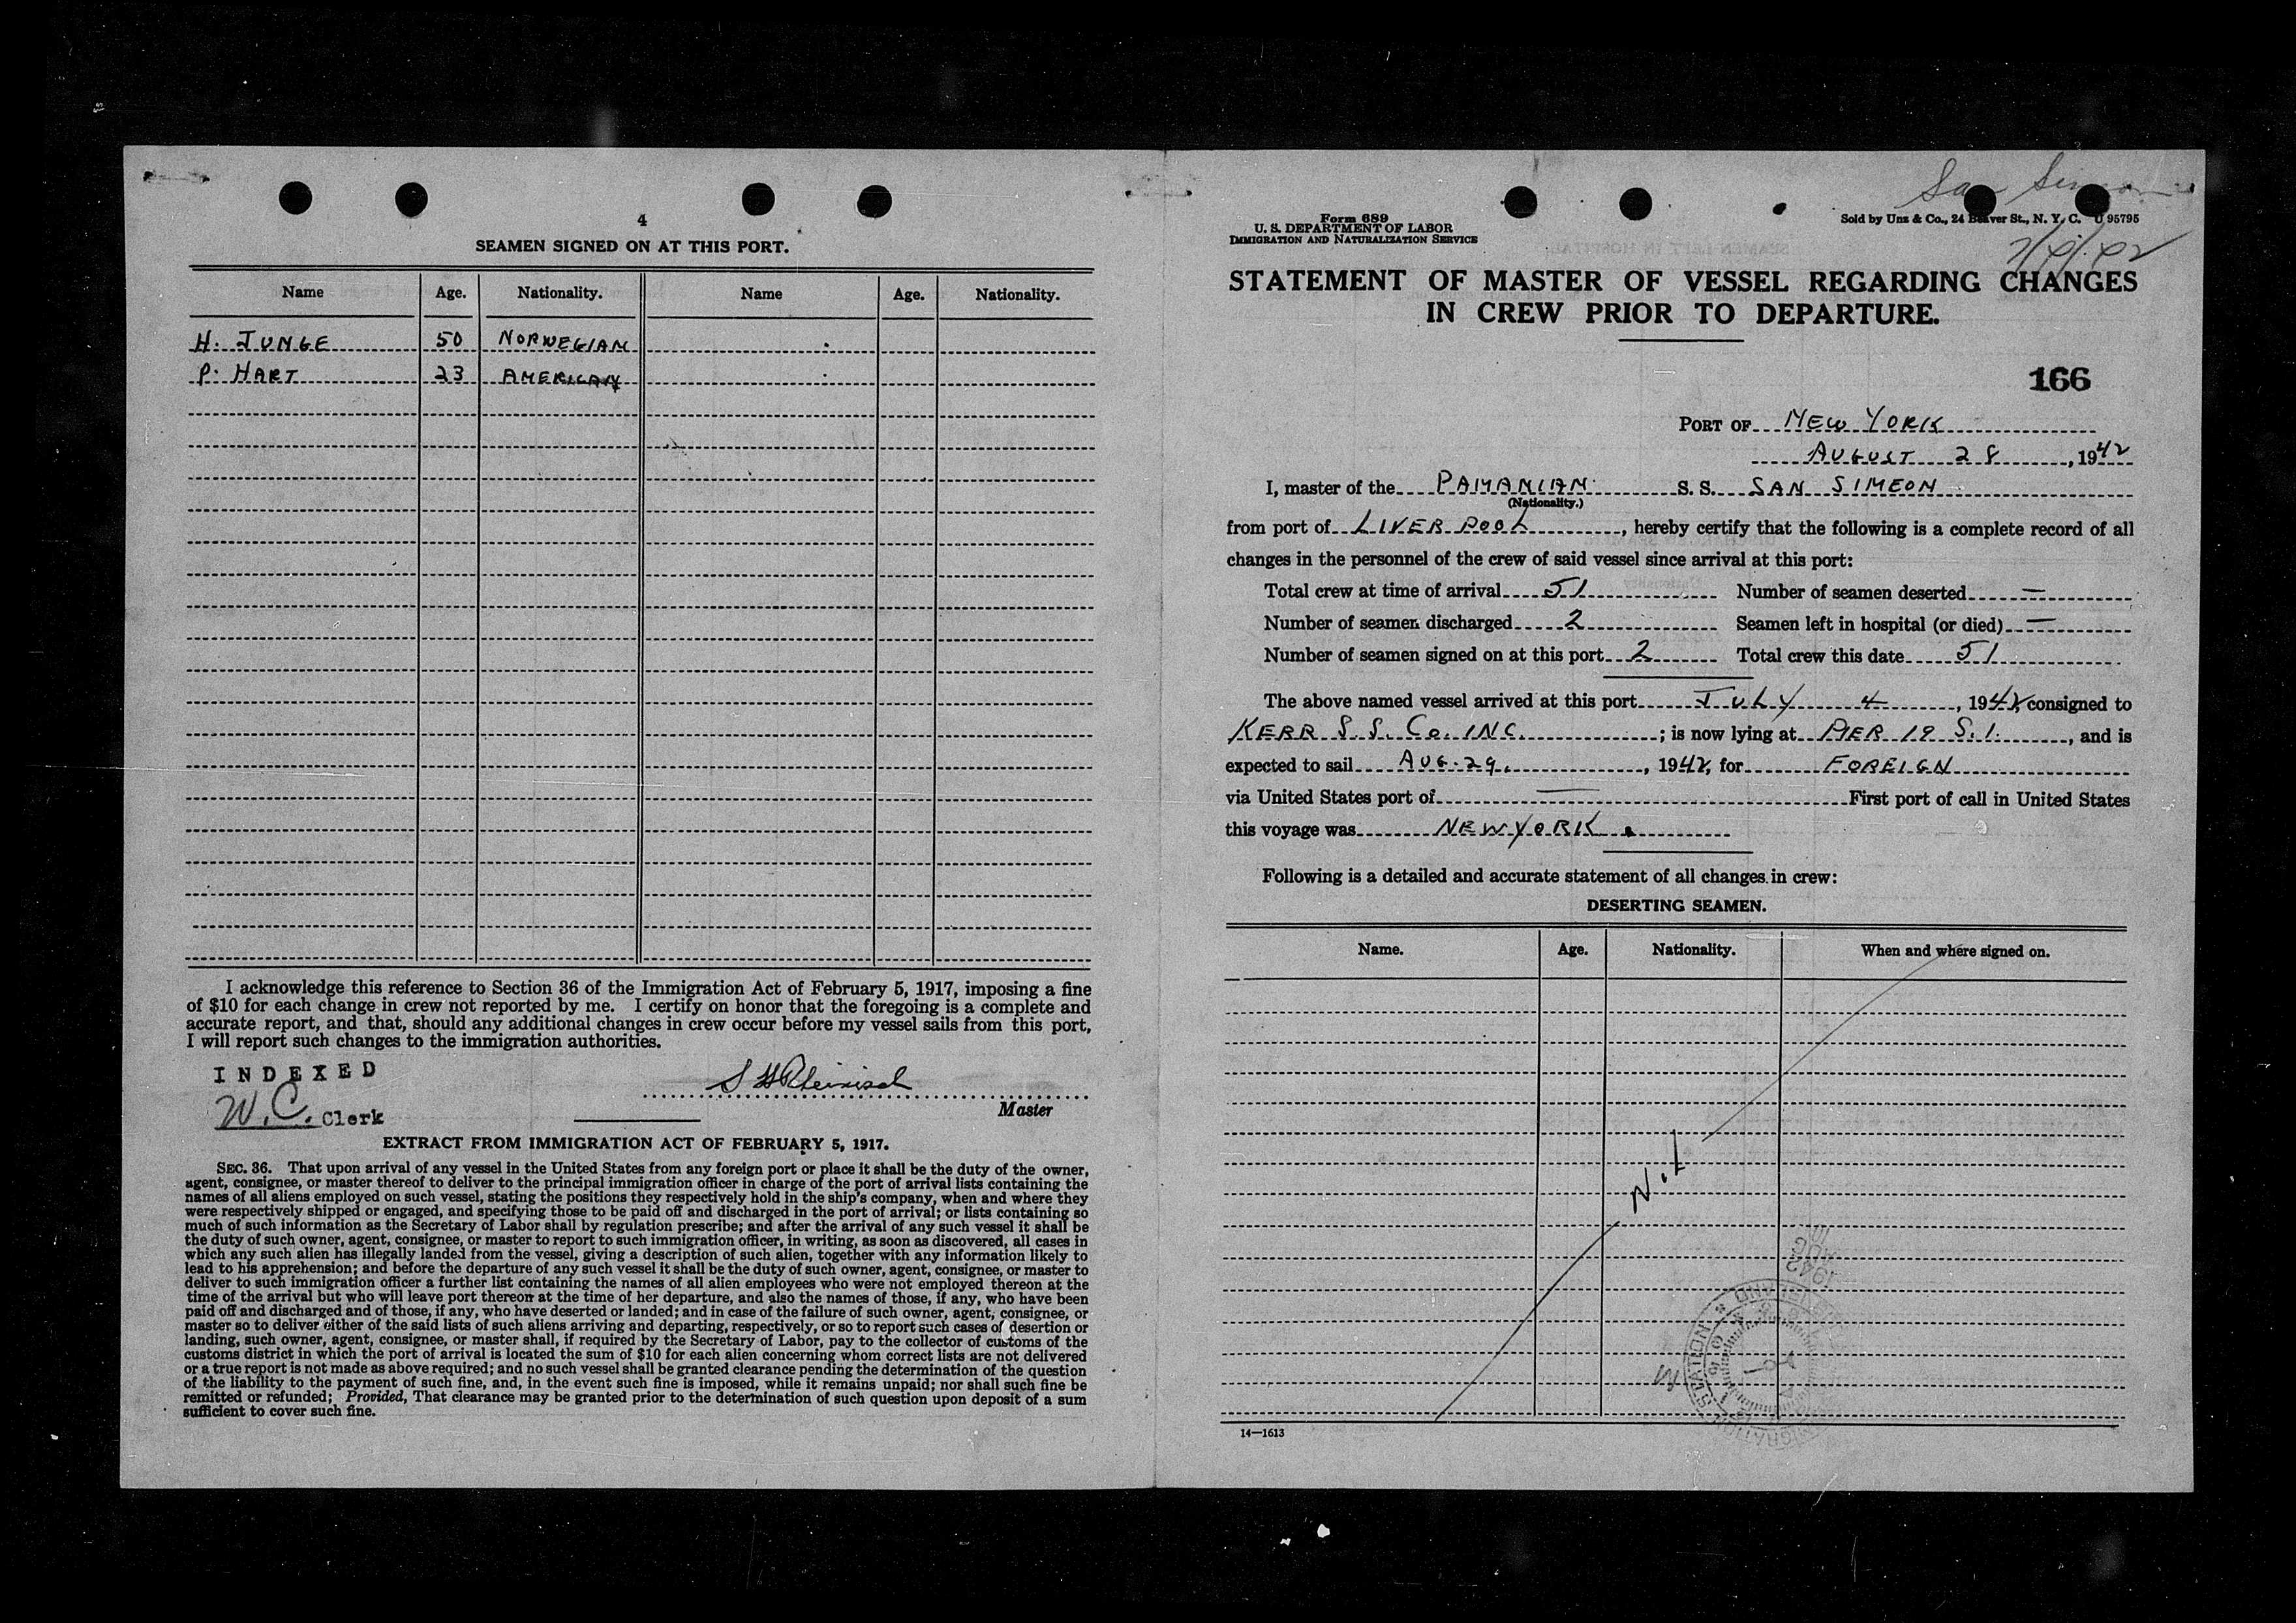 4
SEAMEN SIGNED ON AT THIS PORT.
Name Age. Nationality. Name Age. Nationality.
H. JUNGE 50 NORWEGIAN
P. HART 23 AMERICAN
I acknowledge this reference to Section 36 of the Immigration Act of February 5, 1917, imposing a fine
of $10 for each change in crew not reported by me. I certify on honor that the foregoing is a complete and
accurate report, and that, should any additional changes in crew occur before my vessel sails from this port,
I will report such changes to the immigration authorities.
INDEXED
W.C. Clerk
Master
EXTRACT FROM IMMIGRATION ACT OF FEBRUARY 5, 1917.
SEC. 36. That upon arrival of any vessel in the United States from any foreign port or place it shall be the duty of the owner,
agent, consignee, or master thereof to deliver to the principal immigration officer in charge of the port of arrival lists containing the
names of all aliens employed on such vessel, stating the positions they respectively hold in the ship's company, when and where they
were respectively shipped or engaged, and specifying those to be paid off and discharged in the port of arrival; or lists containing so
much of such information as the Secretary of Labor shall by regulation prescribe; and after the arrival of any such vessel it shall be
the duty of such owner, agent, consignee, or master to report to such immigration officer, in writing, as soon as discovered, all cases in
which any such alien has illegally landed from the vessel, giving a description of such alien, together with any information likely to
lead to his apprehension; and before the departure of any such vessel it shall be the duty of such owner, agent, consignee, or master to
deliver to such immigration officer a further list containing the names of all alien employees who were not employed thereon at the
time of the arrival but who will leave port thereon at the time of her departure, and also the names of those, if any, who have been
paid off and discharged and of those, if any, who have deserted or landed; and in case of the failure of such owner, agent, consignee, or
master so to deliver either of the said lists of such aliens arriving and departing, respectively, or so to report such cases of desertion or
landing, such owner, agent, consignee, or master shall, if required by the Secretary of Labor, pay to the collector of customs of the
customs district in which the port of arrival is located the sum of $10 for each alien concerning whom correct lists are not delivered
or a true report is not made as above required; and no such vessel shall be granted clearance pending the determination of the question
of the liability to the payment of such fine, and, in the event such fine is imposed, while it remains unpaid; nor shall such fine be
remitted or refunded; Provided, That clearance may be granted prior to the determination of such question upon deposit of a sum
sufficient to cover such fine.
San Simeon
Form 689
U. S. DEPARTMENT OF LABOR
IMMIGRATION AND NATURALIZATION SERVICE
Sold by Unz & Co., 24 Beaver St., N. Y. C. U 95795
STATEMENT OF MASTER OF VESSEL REGARDING CHANGES
IN CREW PRIOR TO DEPARTURE.
166
PORT OF NEW YORK
AUGUST 28, 1942
I, master of the PAMANIAN S. S. SAN SIMEON
(Nationality.)
from port of LIVERPOOL, hereby certify that the following is a complete record of all
changes in the personnel of the crew of said vessel since arrival at this port:
Total crew at time of arrival 51 Number of seamen deserted —
Number of seamen discharged 2 Seamen left in hospital (or died) —
Number of seamen signed on at this port 2 Total crew this date 51
The above named vessel arrived at this port JULY 4, 1942, consigned to
KERR S. S. Co. INC.; is now lying at PIER 19 S. I., and is
expected to sail AUG. 29., 1942, for FOREIGN
via United States port of — First port of call in United States
this voyage was NEW YORK.
Following is a detailed and accurate statement of all changes in crew:
DESERTING SEAMEN.
Name. Age. Nationality. When and where signed on.
NiL
14—1613